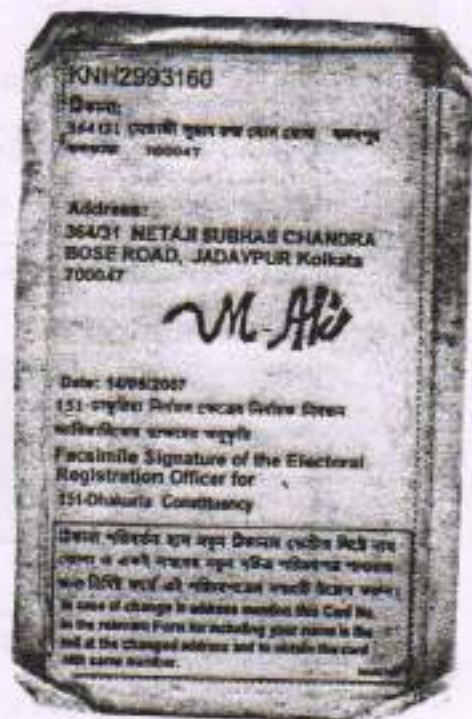 KNH2993160
ঠিকানা:
364/31 নেতাজী সুভাষ চন্দ্র বোস রোড যাদবপুর
কলকাতা 700047
Address:
364/31 NETAJI SUBHAS CHANDRA
BOSE ROAD, JADAVPUR Kolkata
700047
Date: 14/05/2007
151-ঢাকুরিয়া নির্বাচন ক্ষেত্রের নির্বাচক নিবন্ধন
আধিকারিকের স্বাক্ষরের অনুকৃতি
Facsimile Signature of the Electoral
Registration Officer for
151-Dhakuria Constituency
ঠিকানা পরিবর্তন হলে নতুন ঠিকানায় ভোটার লিস্টে নাম
তোলা ও একই নম্বরের নতুন সচিত্র পরিচয়পত্র পাওয়ার
জন্য নির্দিষ্ট ফর্মে এই পরিচয়পত্রের নম্বরটি উল্লেখ করুন।
In case of change in address mention this Card No.
in the relevant Form for including your name in the
roll at the changed address and to obtain the card
with same number.